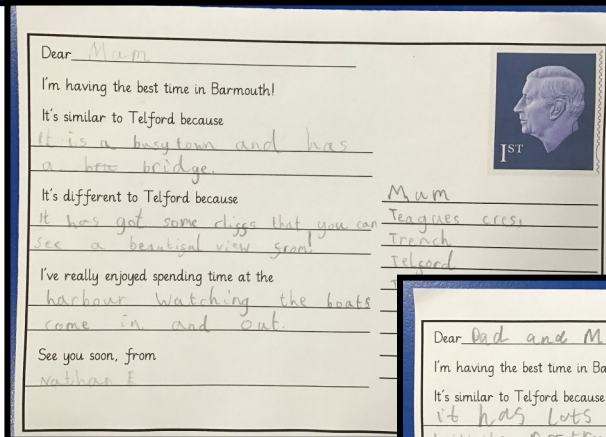 Dear Mum
I'm having the best time in Barmouth!
It's similar to Telford because
It is a busy town and has
a bridge.
It's different to Telford because
It has got some cliggs that you can
see a beautigul view grom!
I've really enjoyed spending time at the
harbour watching the boats
come in and out.
See you soon, from
Nathan E
1ST
Mum
Teagues cres,
Trench
Telgord
Dear Dad and M
I'm having the best time in Ba
It's similar to Telford because
it has Lots